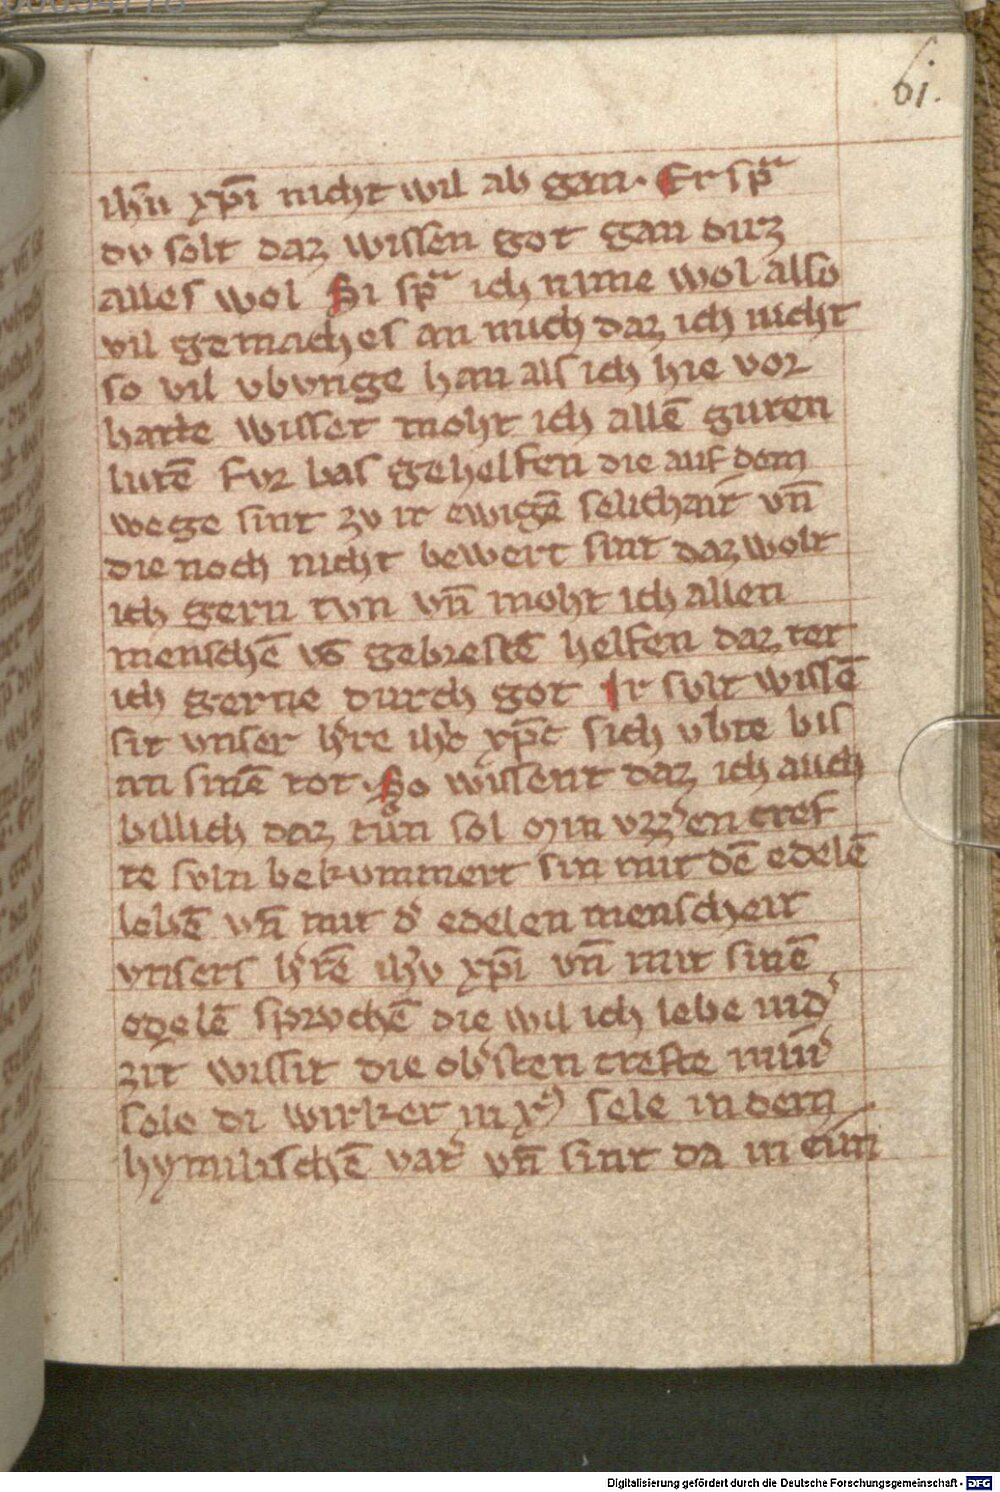 61.
ihū xp̄i nicht wil ab gan. Er spᵃ
du solt daz wissen got gan diz
alles wol Si spᵃ ich nime wol also
vil gemaches an mich daz ich nicht
so vil vbvnge han als ich hie vor
hatte wisset moht ich allē guten
lutē fvr bas gehelfen die auf dem
wege sint zv ir ewigē selichait vn̄
die noch nicht bewert sint daz wolt
ich gern tvn vn̄ moht ich allen
menschē vō gebrestē helfen daz tet
ich gerne durch got Ir svlt wissē
sit vnser hr̄e ih̄c xp̄c sich vbte bis
an sinē tot. So wissent daz ich auch
billich daz tun sol Min vzz'en cref
te svln bekvmmert sin mit dē edelē
lebē vn̄ mit d' edelen menscheit
vnsers hr̄ē ih̄v xp̄i vn̄ mit sinē
edelē sprvchē die wil ich lebe in d'
zit wissit die ob'sten crefte min'
sele di wirket in sele in dem
hymilischē vat' vn̄ sint da in
Digitalisierung gefördert durch die Deutsche Forschungsgemeinschaft - DFG